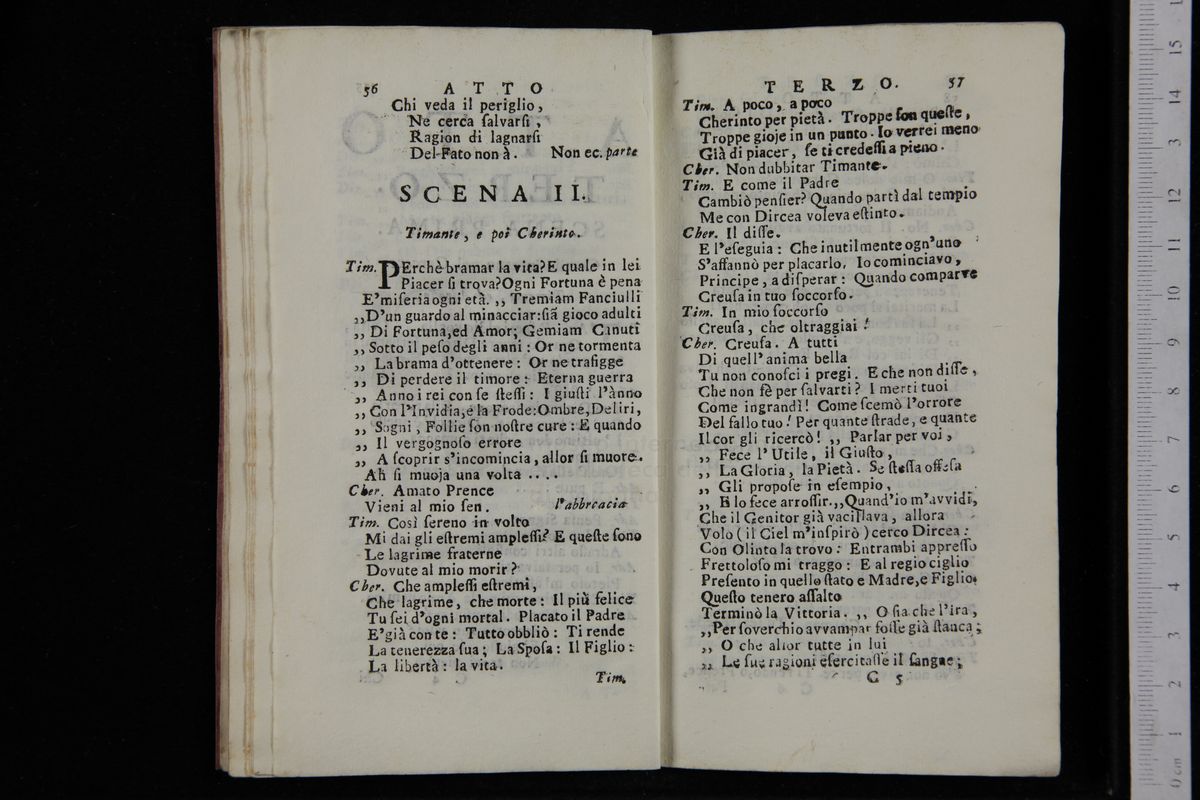 56 ATTO
Chi veda il periglio,
Ne cerca ſalvarſi,
Ragion di lagnarſi
Del Fato non à. Non ec. parte
SCENA II.
Timante, e poi Cherinto.
Tim. PErchè bramar la vita? E quale in lei
Piacer ſi trova? Ogni Fortuna è pena
E' miſeria ogni età. ,, Tremiam Fanciulli
,, D'un guardo al minacciar: ſiã gioco adulti
,, Di Fortuna, ed Amor; Gemiam Canuti
,, Sotto il peſo degli anni: Or ne tormenta
,, La brama d'ottenere: Or ne trafigge
,, Di perdere il timore: Eterna guerra
,, Anno i rei con ſe ſteſſi: I giuſti l'ànno
,, Con l'Invidia, e la Frode: Ombre, Deliri,
,, Sogni, Follie ſon noſtre cure: E quando
,, Il vergognoſo errore
,, A ſcoprir s'incomincia, allor ſi muore.
Ah ſi muoja una volta ....
Cher. Amato Prence
Vieni al mio ſen. l'abbraccia
Tim. Così ſereno in volto
Mi dai gli eſtremi ampleſſi? E queſte ſono
Le lagrime fraterne
Dovute al mio morir?
Cher. Che ampleſſi eſtremi,
Che lagrime, che morte: Il più felice
Tu ſei d'ogni mortal. Placato il Padre
E' già con te: Tutto obbliò: Ti rende
La tenerezza ſua; La Spoſa: Il Figlio:
La libertà: la vita.
Tim.
TERZO. 57
Tim. A poco, a poco
Cherinto per pietà. Troppe ſon queſte,
Troppe gioje in un punto. Io verrei meno
Già di piacer, ſe ti credeſſi a pieno.
Cher. Non dubbitar Timante.
Tim. E come il Padre
Cambiò penſier? Quando partì dal tempio
Me con Dircea voleva eſtinto.
Cher. Il diſſe.
E l'eſeguia: Che inutilmente ogn'uno
S'affannò per placarlo. Io cominciavo,
Principe, a diſperar: Quando comparve
Creuſa in tuo ſoccorſo.
Tim. In mio ſoccorſo
Creuſa, che oltraggiai!
Cher. Creuſa. A tutti
Di quell' anima bella
Tu non conoſci i pregi. E che non diſſe,
Che non fè per ſalvarti? I merti tuoi
Come ingrandì! Come ſcemò l'orrore
Del fallo tuo! Per quante ſtrade, e quante
Il cor gli ricercò! ,, Parlar per voi,
,, Fece l'Utile, il Giuſto,
,, La Gloria, la Pietà. Se ſteſſa offeſa
,, Gli propoſe in eſempio,
,, E lo fece arroſſir. ,, Quand'io m'avvidi,
Che il Genitor già vacillava, allora
Volo (il Ciel m'inſpirò) cerco Dircea:
Con Olinto la trovo: Entrambi appreſſo
Frettoloſo mi traggo: E al regio ciglio
Preſento in quello ſtato e Madre, e Figlio.
Queſto tenero aſſalto
Terminò la Vittoria. ,, O ſia che l'ira,
,, Per ſoverchio avvampar foſſe già ſtanca;
,, O che allor tutte in lui
,, Le ſue ragioni eſercitaſſe il ſangue;
C 5